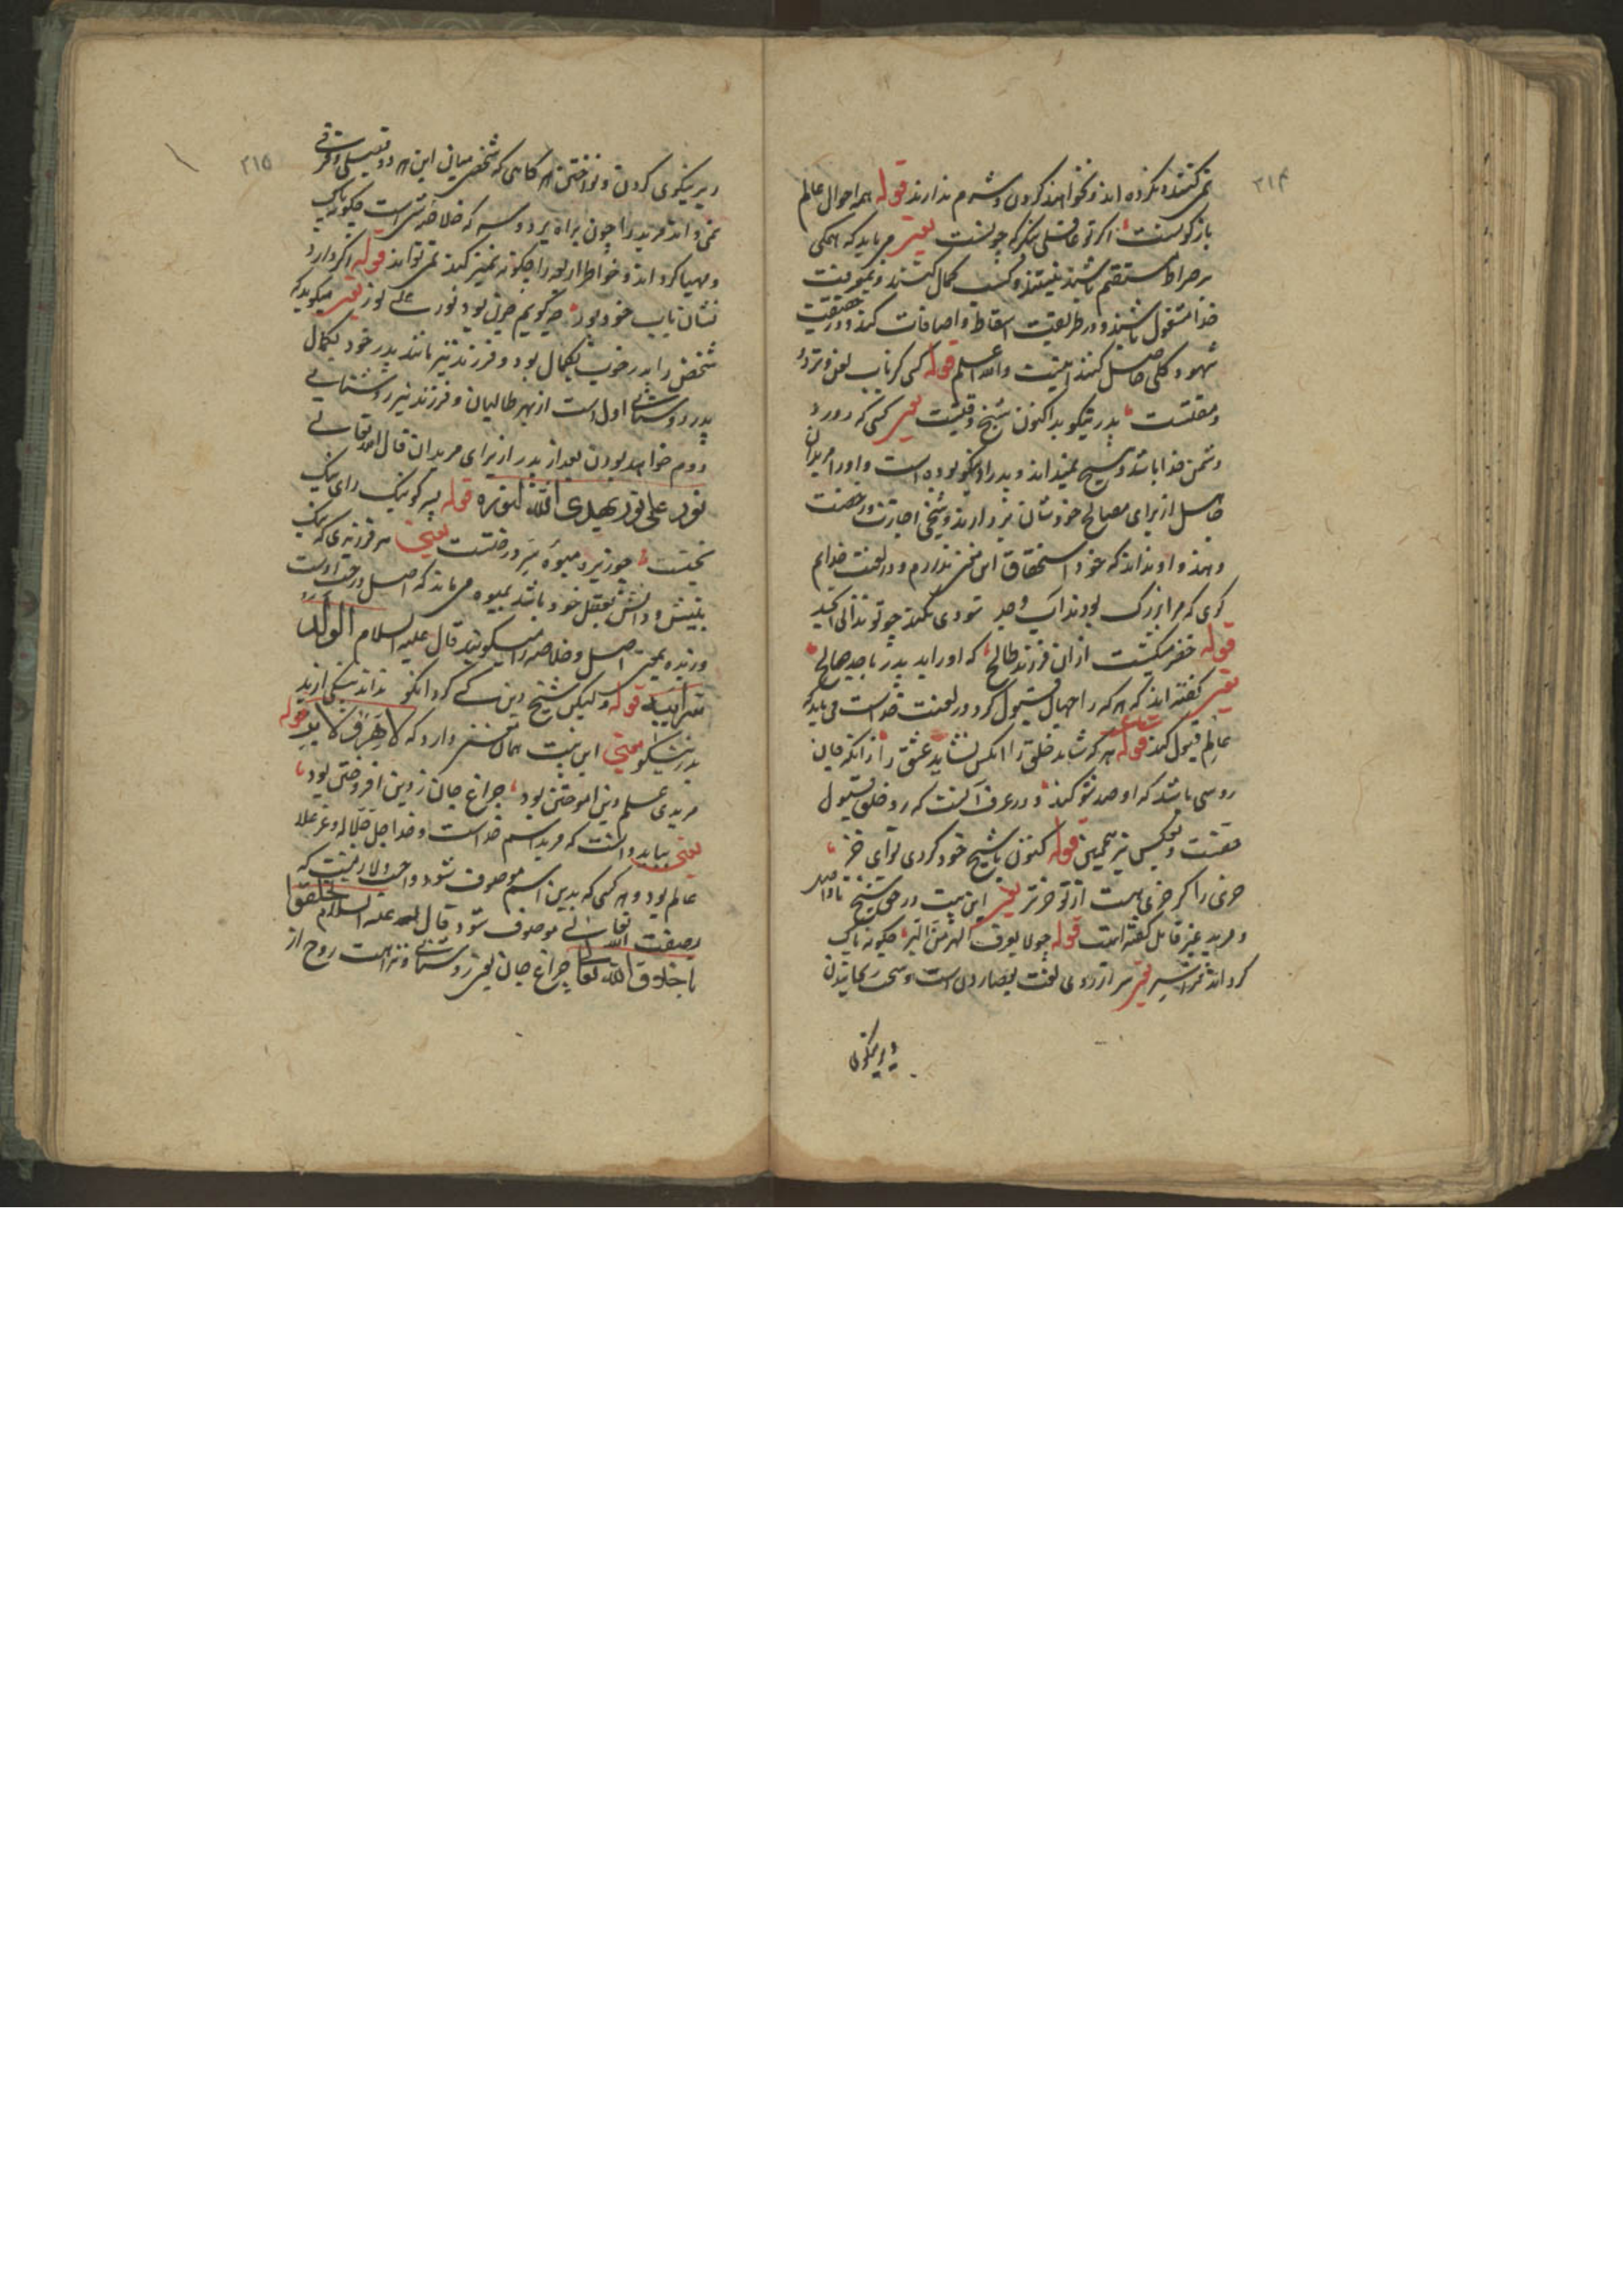 ۳۱۴
نمی کنند و نکرده اند و نخواهند کردن و شرم ندارند قوله همه احوال عالم
باژگونست اگر تو عاقلی بنگر که چونست یعنی می باید که همگی
بر صراط مستقیم باشند نیستند و کسب کمال کنند و بمعرفت
خدا مشغول باشند و در طریقت اسقاط و اضافات کنند و در حقیقت
شهود کلی حاصل کنند اینست والله اعلم قوله کسی کز باب لعن و طرد
و مقتست پدر نیکو بد اکنون شیخ وقتست یعنی کسی که در ورد
دشمن خدا باشد و هیچ نمیداند و پدر او نیکو بوده است و او را مریدان
جاهل از برای مصالح خودشان بزدارند و شیخی اجازت و رخصت
دهند و او نداند که خود استحقاق این معنی ندارم و در لعنت خدایم
قوله خضر میکشت از آن فرزند طالح که او را بد پدر با جد صالح
یعنی گفته اند که هر که را جهال قبول کرد در لعنت خداست می باید که
عالم قبول کند قوله هر که شاید خلق را آنکس نشاید عشق را زانکه جان
روسی باشد که او صد شو کند و در عرف آنست که رد خلق قبول
حقست و بعکس نیز همچنین قوله کنون با شیخ خود کردی تو ای خر
خری را کز خری هست از تو خرتر یعنی این بیت در حق شیخ نااهل
و مرید غیر قابل گفته است قوله چو لا یعرف الهر من البر چگونه پاک
گرداند ترا سر یعنی سر از روی لغت
و بر نیکوی
۳۱۵
و بر نیکوی کردن و نواختن هر گاهی که شخصی میان این هر دو تفصیلی و فرقی
نمی داند مرید را چون براه برد و سر که خلاصه تست چگونه پاک
و مهیا گرداند و خواطر اربعه را چگونه تمییز کند نمی تواند قوله اگر دارد
نشان باب خود پور چه گویم چون بود نور علی نور یعنی میگوید که
شخصی را پدر خوب بکمال بود و فرزند نیز مانند پدر خود بکمال
پدر روشنائی اول است از بهر طالبان و فرزند نیز روشنایی
دوم خواهد بودن بعد از پدر از برای مریدان قال الله تعالی
نور علی نور یهدی الله لنوره قوله پسر کو نیک رای نیک
بختست چو زبده میوه سر درختست یعنی هر فرزندی که نیک
بینش و دانش بعقل خود باشد بمیوه می ماند که اصل درخت اوست
و زبده یعنی اصل و خلاصه را میگویند قال علیه السلام الولد
سر ابیه قوله ولیکن شیخ دین کی گردد آنکو نداند نیک از بد
بد ز نیکو یعنی این بیت همان معنی دارد که لا یعرف لا بر قوله
مریدی علم دین آموختن بود چراغ جان ز دین افروختن بود
یعنی بباید دانست که مرید اسم خداست و خدا جل جلاله و عز علاه
عالم بود و هر کسی که بدین اسم موصوف شود واجب و لازمست که
بصفت الله تعالی موصوف شود قال علیه السلام تخلقوا
باخلاق الله تعالی چراغ جان یعنی روشنائی و نزاهت روح از